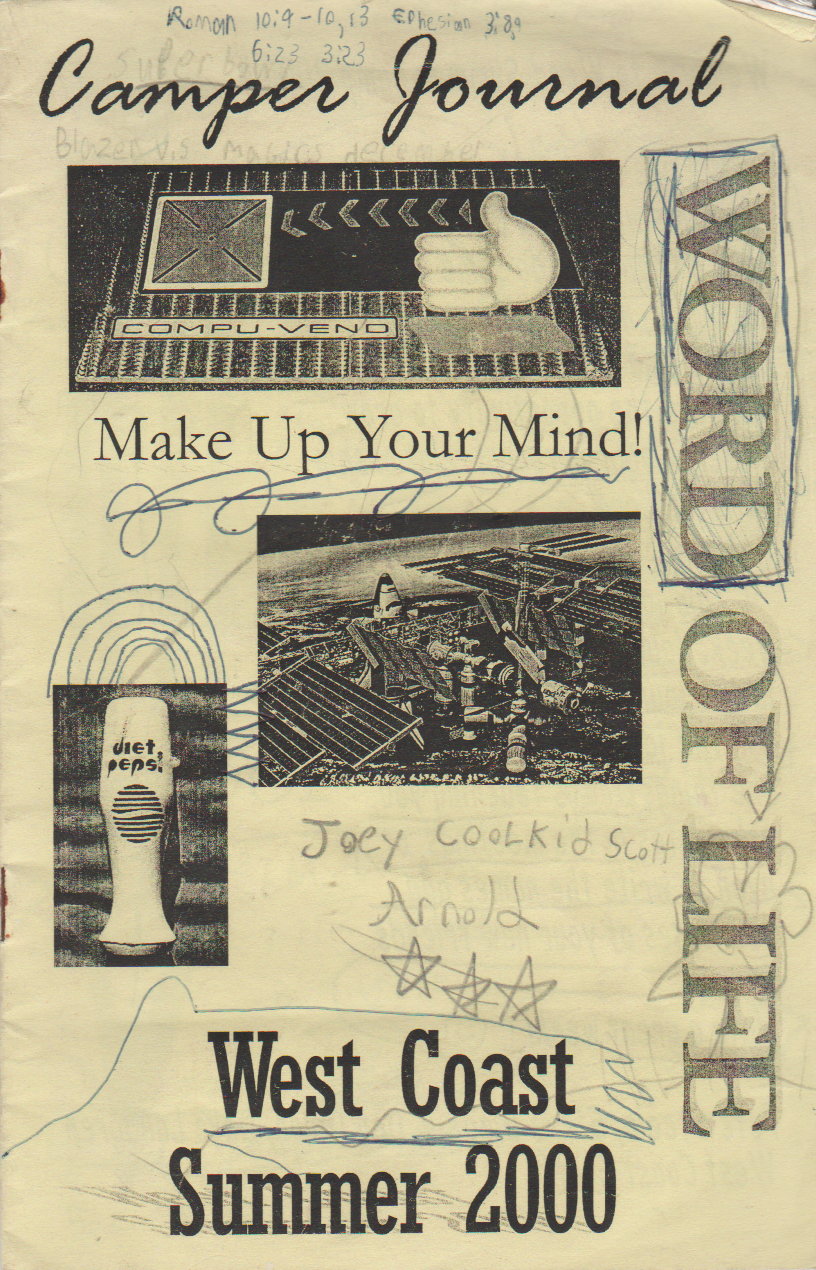 Roman 10:9-10,13 Ephesian 3:8,9
6:23 3:23
Camper Journal
Blazers v.s
COMPU-VEND
Make Up Your Mind!
WORD OF LIFE
diet
pepsi
Joey COOLKid Scott
Arnold
West Coast
Summer 2000